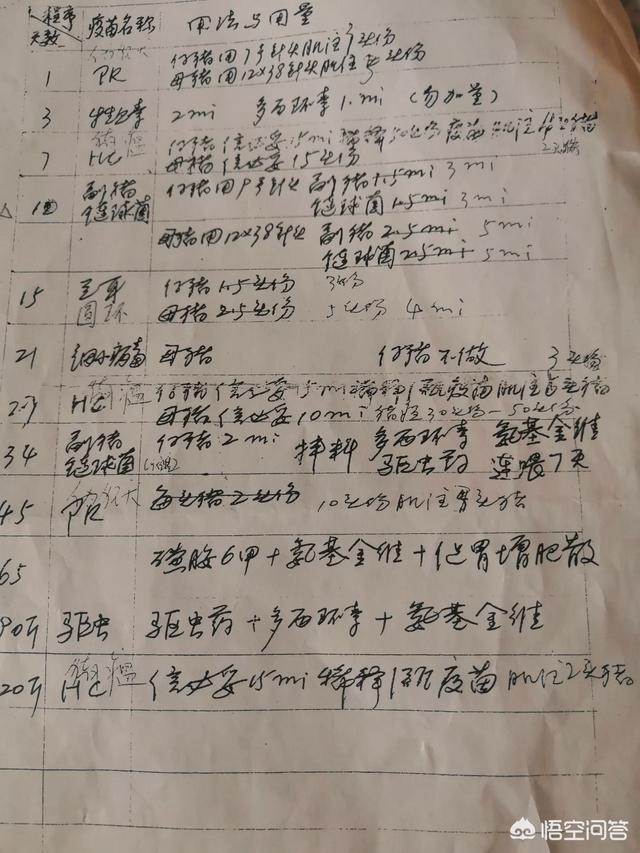 程序 疫苗名称 用法与用量
天数
仔猪用7号针头肌注
1 PR 母猪用12×38针头肌注
3 牲血素 2ml 多西环素1.ml (勿加量)
猪瘟 仔猪信必妥15ml稀释50头份疫苗肌注
7 HC 母猪信必妥15头份
副猪 仔猪用9号针头 副猪1.5ml 3ml
链球菌 链球菌1.5ml 3ml
母猪用12×38针头 副猪2.5ml 5ml
链球菌2.5ml 5ml
15 仔猪1.5头份
圆环 母猪2.5头份 4ml
21 细小病毒 母猪 仔猪不做 3头份
HC 瘟 仔猪信必妥15ml稀释1瓶疫苗肌注
母猪信必妥10ml 30头份-50头份
34 副猪 仔猪2ml 拌料 多西环素 氨基金维
链球菌 驱虫药 连喂7天
45 PR 10头份肌注
65 磺胺6甲+氨基金维+健胃增肥散
90斤 驱虫 驱虫药+多西环素+氨基金维
猪瘟
20斤 HC 信必妥15ml稀释1瓶疫苗肌注
悟空问答